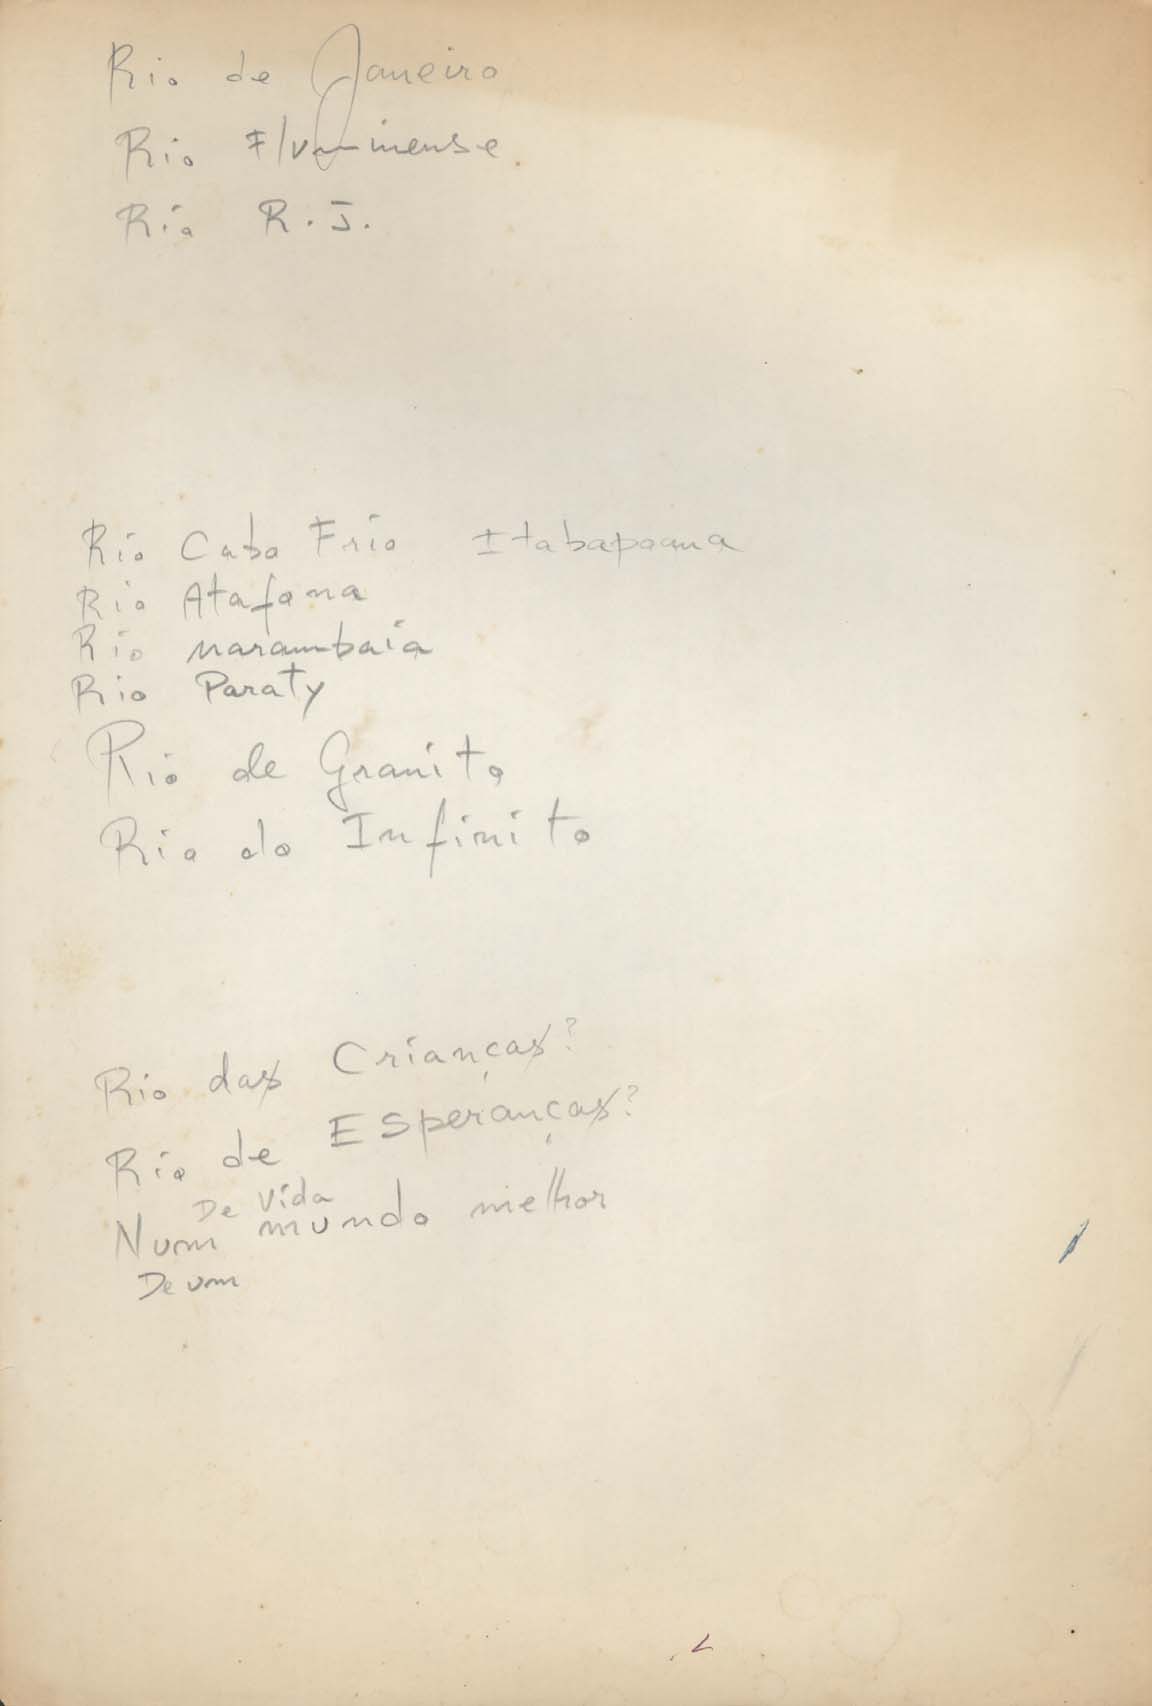 Rio de Janeiro
Rio Fluminense.
Rio R.J.
Rio Cabo Frio Itabapoana
Rio Atafona
Rio Marambaia
Rio Paraty
Rio de Granito
Rio do Infinito
Rio das Crianças?
Rio de Esperanças?
De Vida
Num mundo melhor
De um